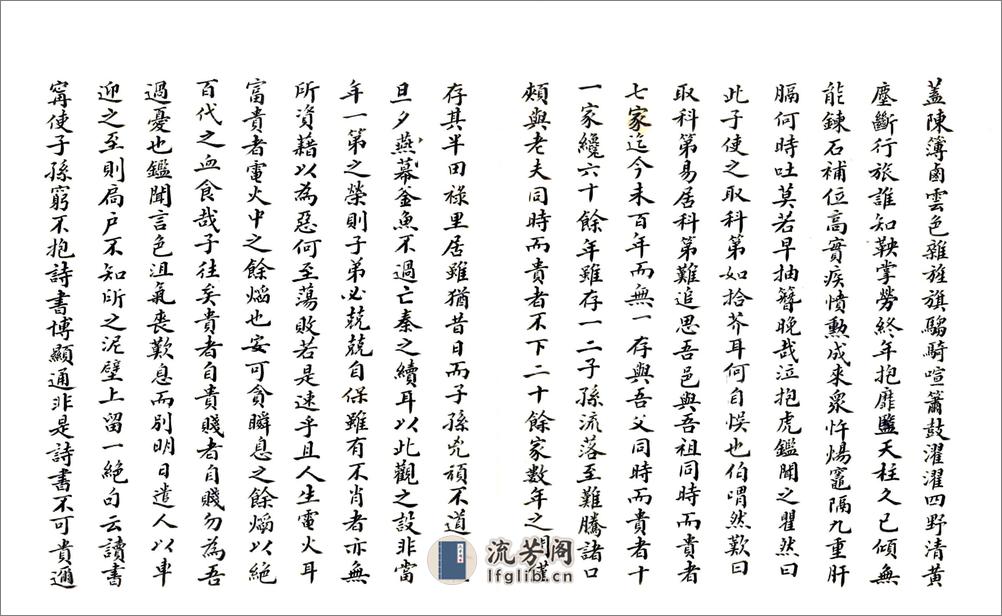 蓋陳簿鹵雲色雜旌旗驕騎喧簫鼓濯濯四野清黄
塵斷行旅誰知鞅掌勞終年抱靡盬天柱久已傾無
能鍊石補位高實疾憤勲成来衆忤煬竈隔九重肝
膈何時吐莫若早抽簪晚哉泣抱虎鑑聞之瞿然曰
此子使之取科第如拾芥耳何自悞也伯喟然歎曰
取科第易居科第難追思吾邑與吾祖同時而貴者
七家迄今未百年而無一存與吾父同時而貴者十
一家纔六十餘年雖存一二子孫流落至難騰諸口
頰與老夫同時而貴者不下二十餘家数年之間僅
存其半田禄里居雖猶昔日而子孫兇頑不道
旦夕燕幕釜魚不過亡秦之續耳以此觀之設非當
年一第之榮則子弟必兢兢自保雖有不肖者亦無
所資藉以為惡何至蕩敗若是速乎且人生電火耳
富貴者電火中之餘焰也安可貪瞬息之餘焰以絶
百代之血食哉子往矣貴者自貴賤者自賤勿為吾
過憂也鑑聞言色沮氣喪歎息而别明日遣人以車
迎之至則扃户不知所之泥壁上留一絶句云讀書
寗使子孫窮不抱詩書博顯通非是詩書不可貴邇
流芳阁
lfglib.cn